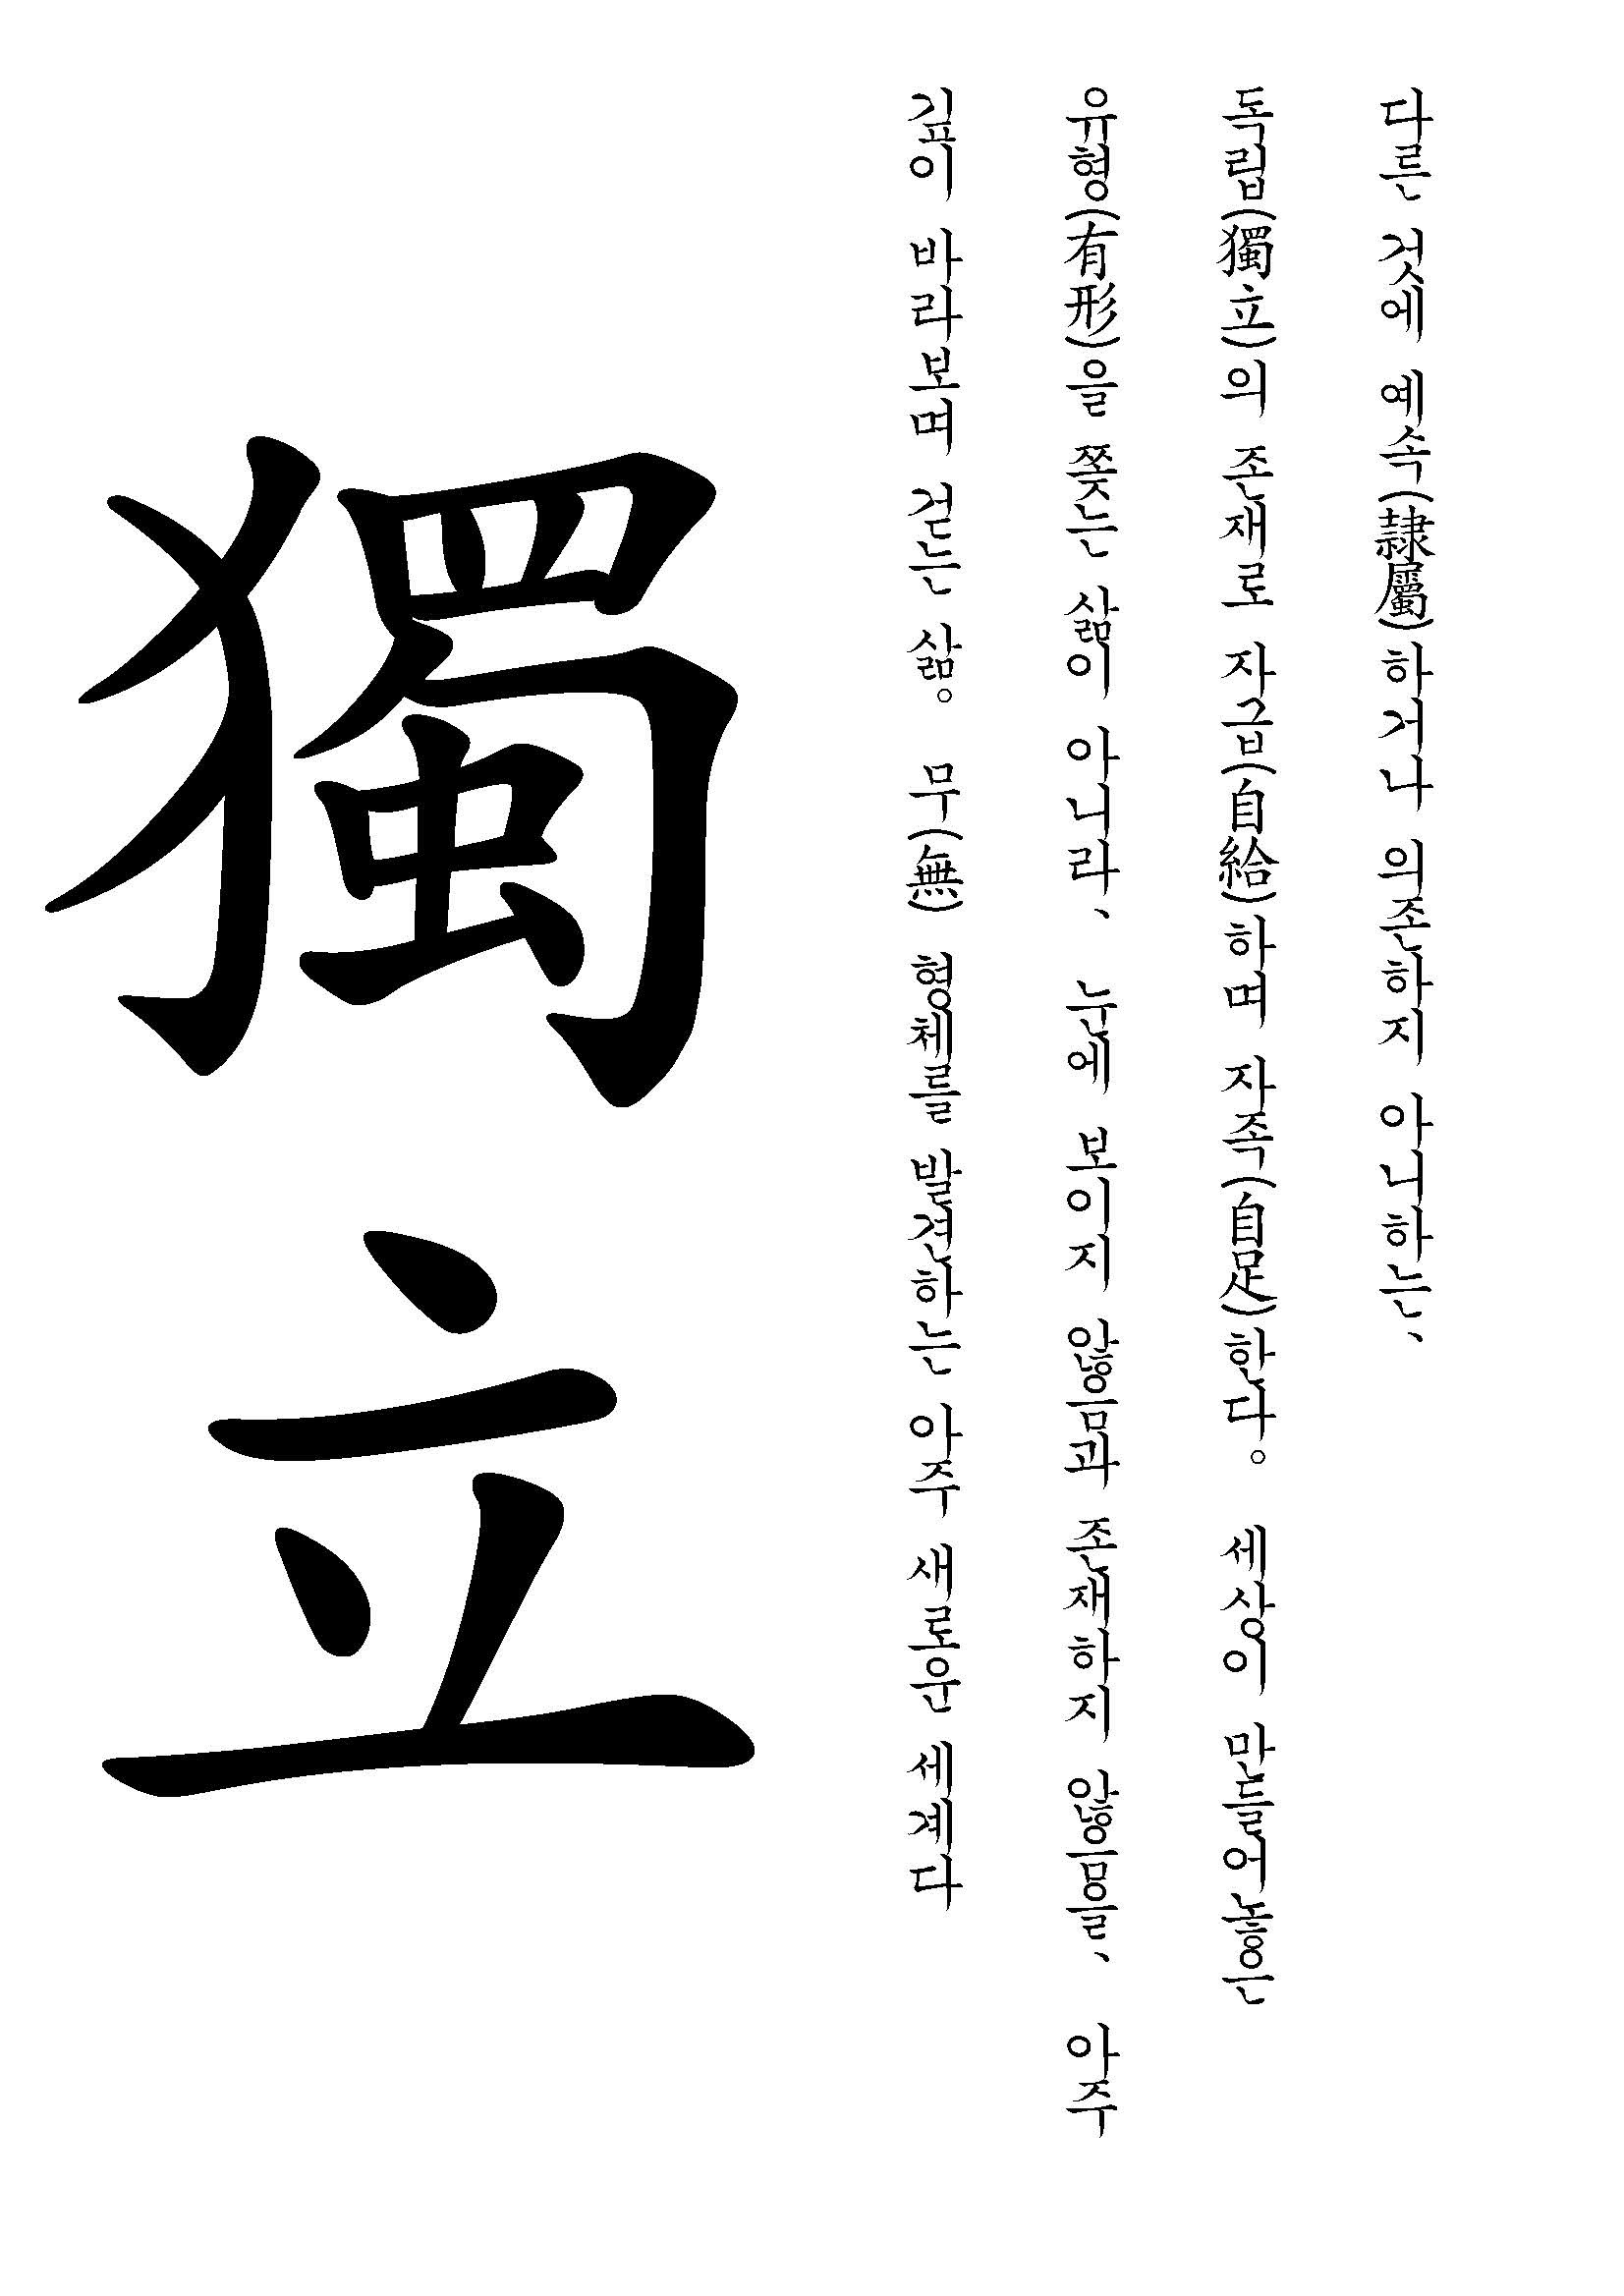 다른 것에 예속(隸屬)하거나 의존하지 아니하는、
독립(獨立)의 존재로 자급(自給)하며 자족(自足)한다。 세상이 만들어놓은
유형(有形)을 쫒는 삶이 아니라、 눈에 보이지 않음과 존재하지 않음을、 아주
깊이 바라보며 걷는 삶。 무(無) 형체를 발견하는 아주 새로운 세계다
獨立